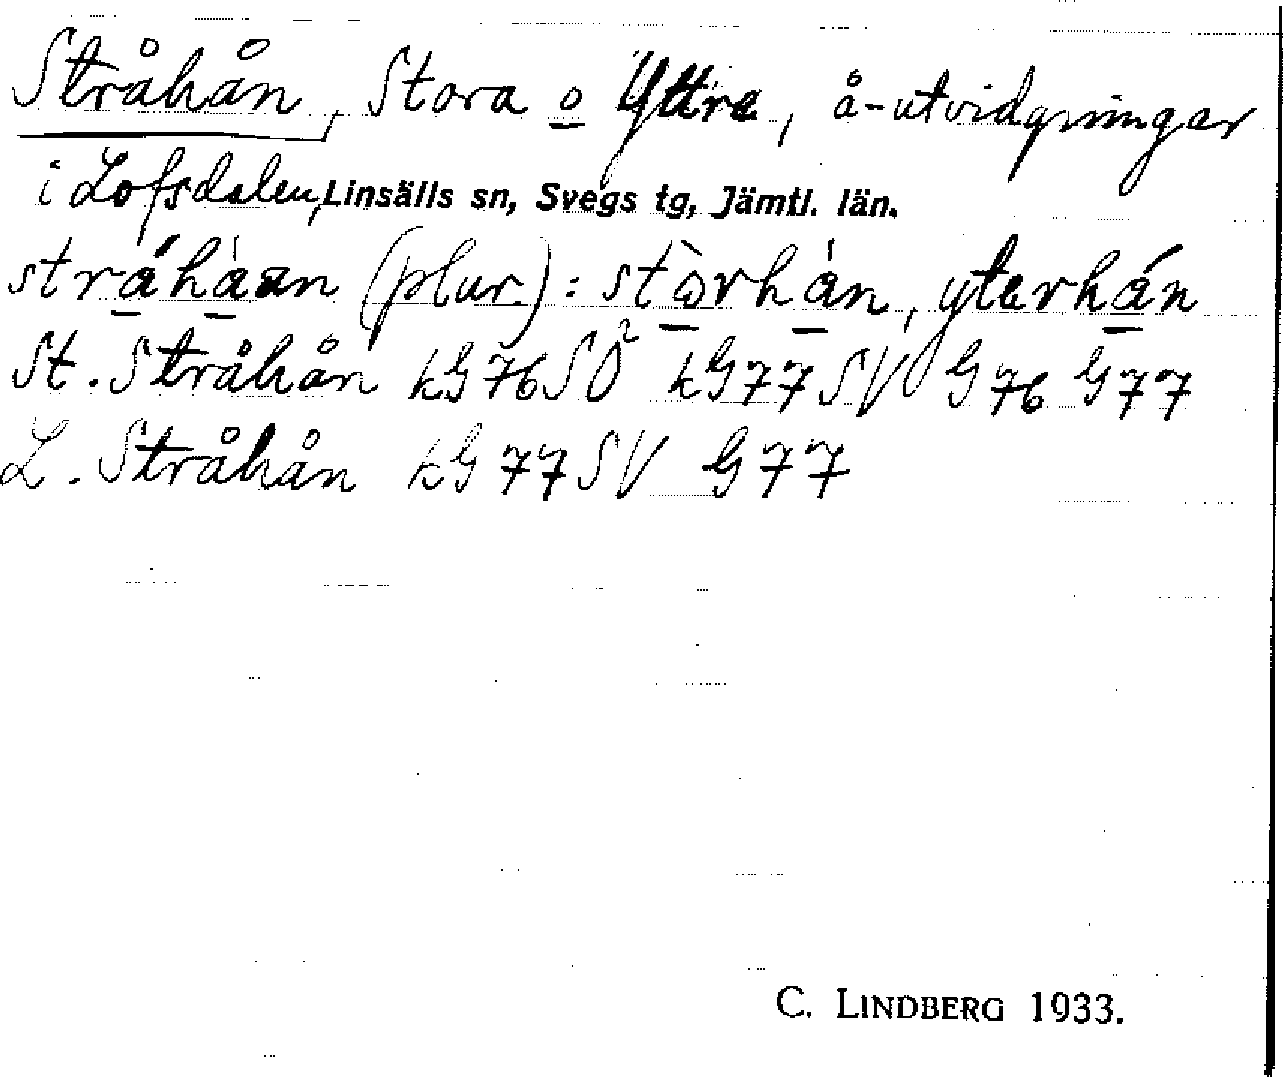 Stråhån, Stora o Yttre, å-utvidgningar
i Lofsdalen, Linsälls sn, Svegs tg, Jämtl. län.
stráhàan (plur.): stòrhàn, yterhán
St. Stråhån kG76SÖ kG77SV G76 G77
L. Stråhån kG77SV G77
C. LINDBERG 1933.